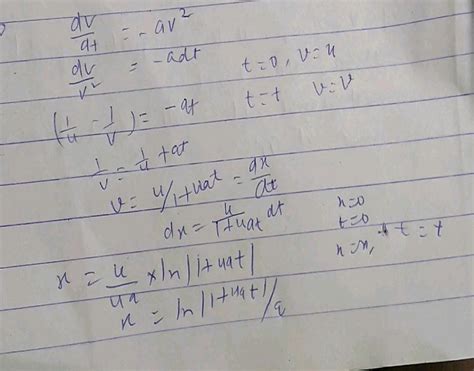 dv/dt = -av²
dv/v² = -adt   t=0, v=u
(1/u - 1/v) = -at   t=t   v=v
1/v = 1/u + at
v = u/1+uat = dx/dt
dx = u/1+uat dt   x=0
t=0
x = u/ua × ln|1+uat|   x=x, t=t
x = ln|1+uat|/a